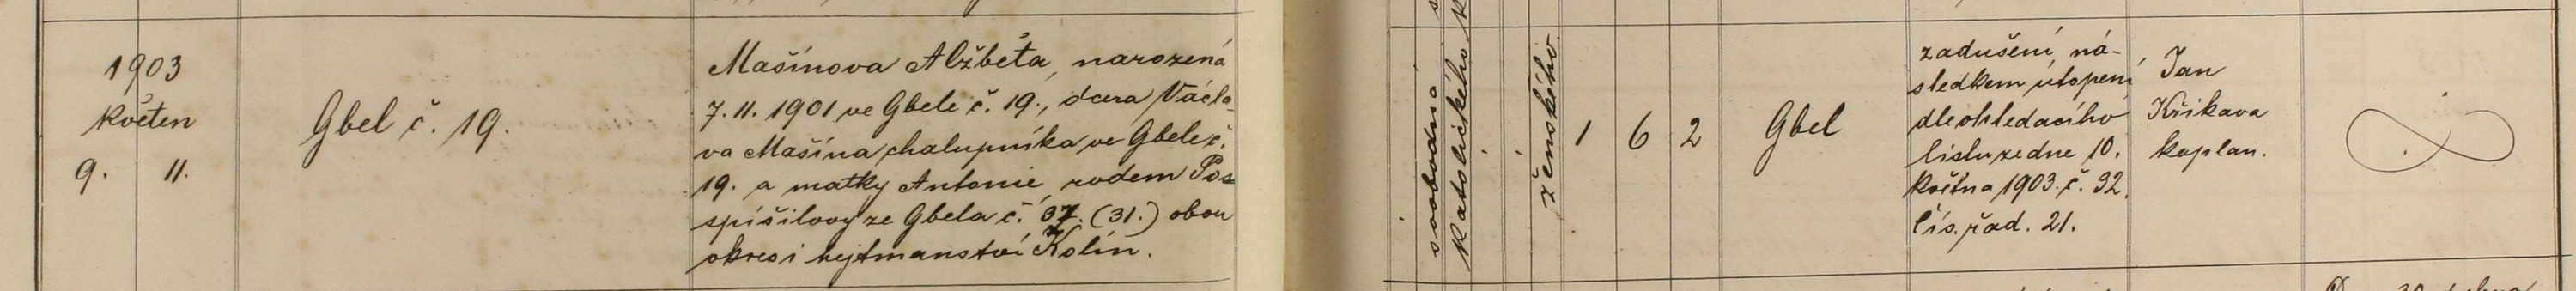 1903
květen
9. 11.
Gbel č. 19.
Mašínova Alžběta, narozená
7. 11. 1901 ve Gbele č. 19., dcera Václa-
va Mašína chalupníka ve Gbele č.
19. a matky Antonie rodem Pos-
spíšilovy ze Gbela č. 37. (31.) obou
okres i hejtmanství Kolín.
svobodná
Katolického
ženského
1 6 2
Gbel
zadušení ná-
sledkem útopení
dle ohledacího
listu ze dne 10.
května 1903. č. 32.
čís. řad. 21.
Jan
Křikava
kaplan.